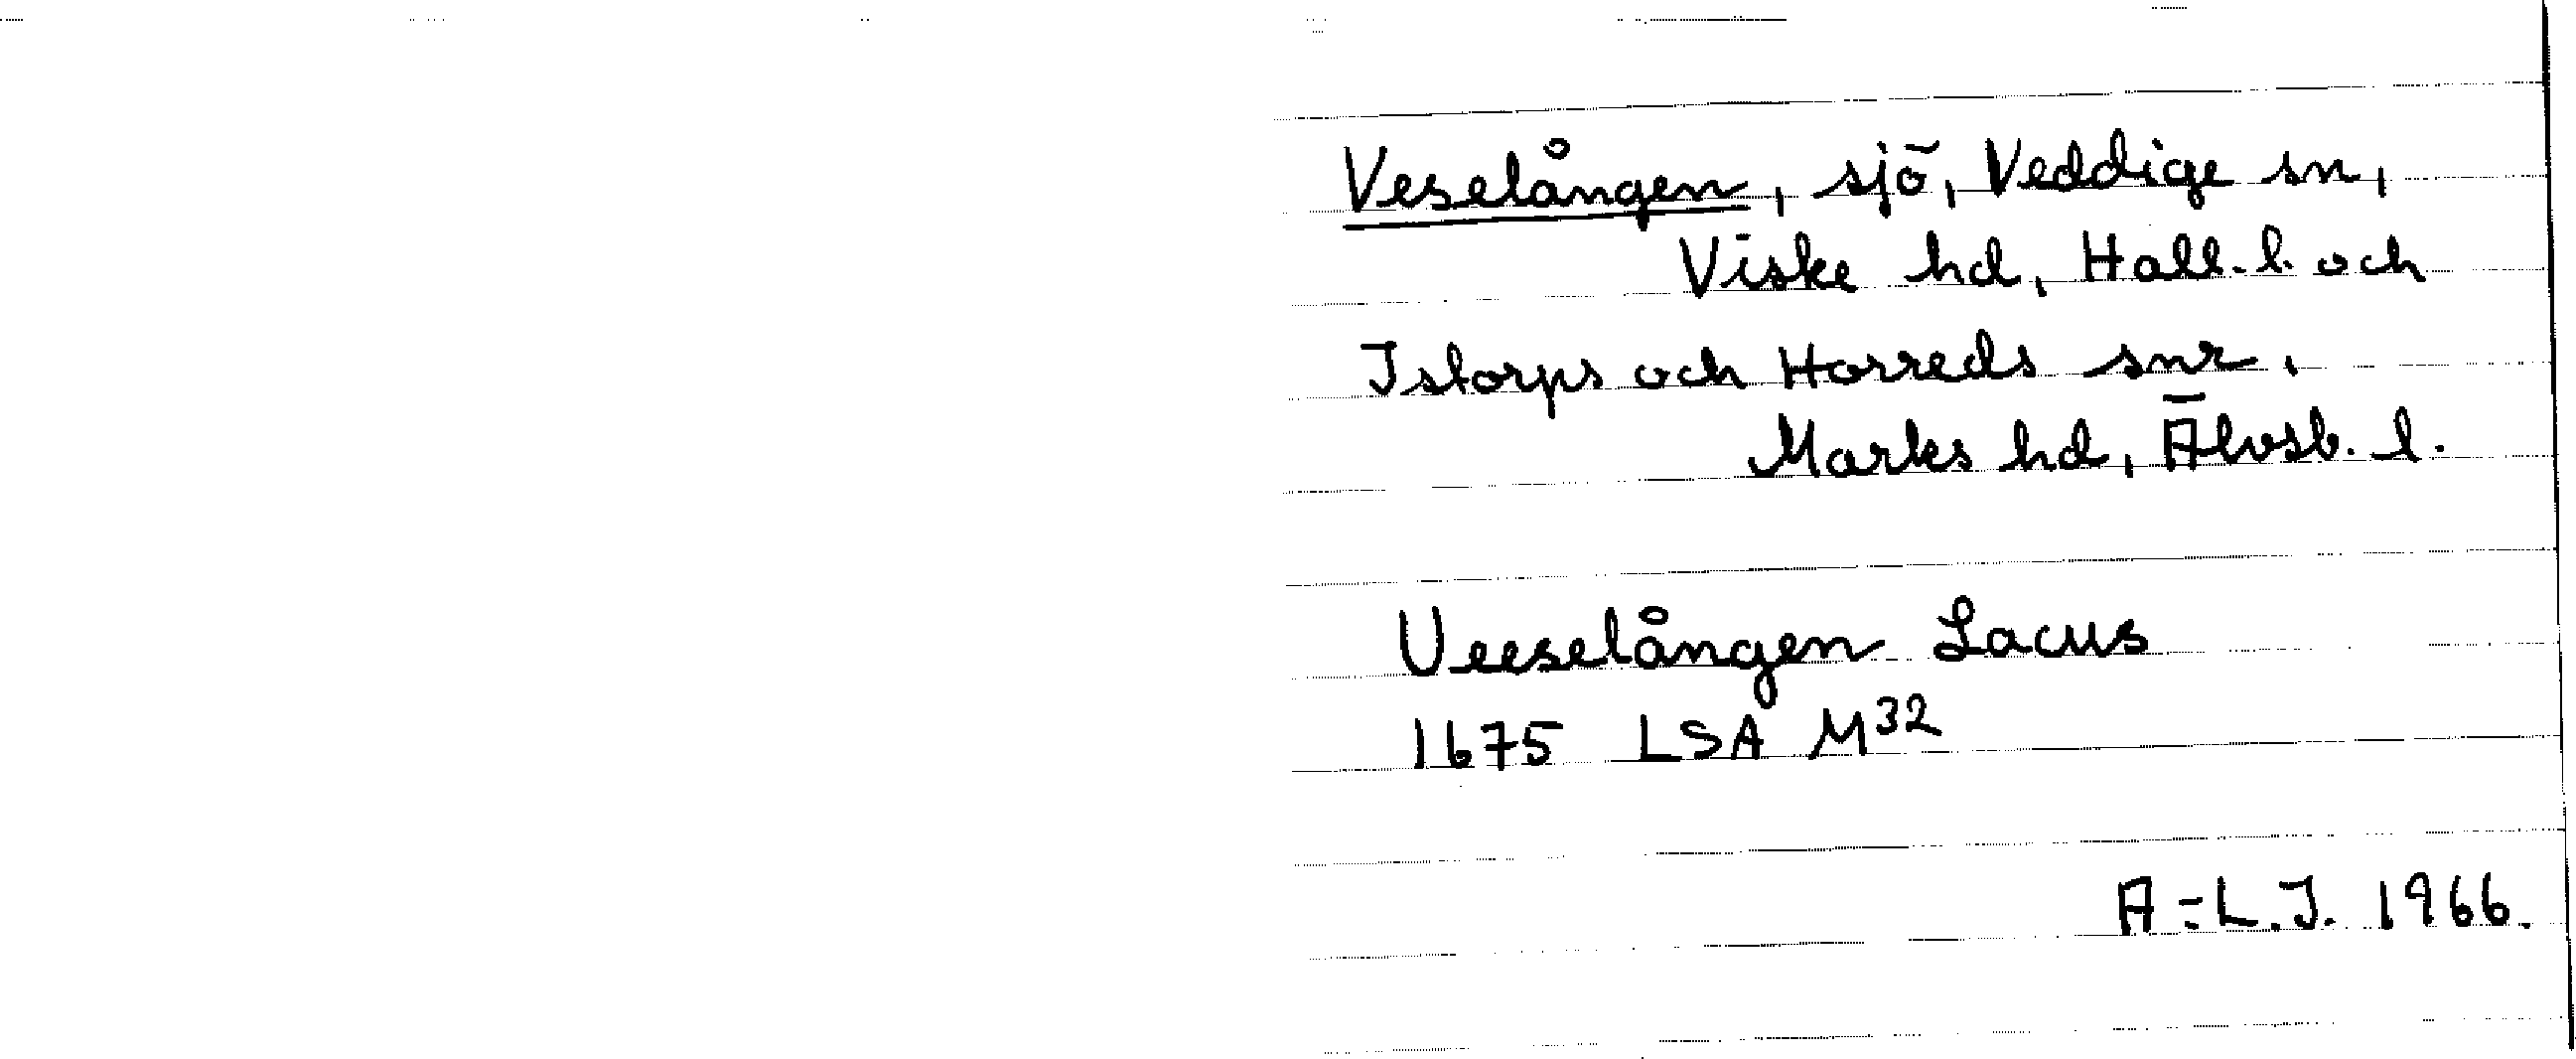 Veselången, sjö, Veddige sn,
Viske hd, Hall. l. och
Istorps och Horreds snr,
Marks hd, Älvsb. l.
Veeselången Lacus
1675 LSA M32
A-L.J. 1966.